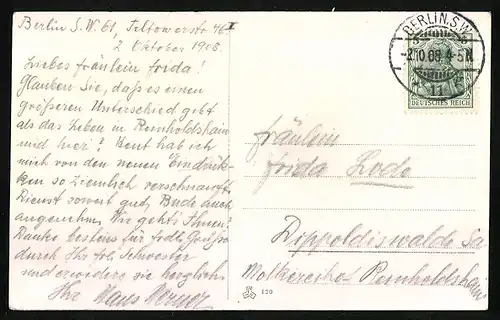 Berlin S.W. 61, Teltowerstr. 46 I
2. Oktober 1908.
Liebes Fräulein Frida!
Glauben Sie, daß es einen
größeren Unterschied gibt
als das Leben in Reinholdshain
und hier? Heut hab ich
mich von den neuen Eindrük-
ken so ziemlich verschnauft.
Dienst soweit gut, Bude auch
angenehm. Wie geht's Ihnen?
Danke bestens für frdl. Grüße
durch Ihr frl. Schwester
und erwidere sie herzlichst
Ihr Hans
BERLIN.S.W.
2.10.08.4-5N
11
DEUTSCHES REICH
Fräulein
Frida Lode
Dippoldiswalde Sa
Molkereihof Reinholdshain
120